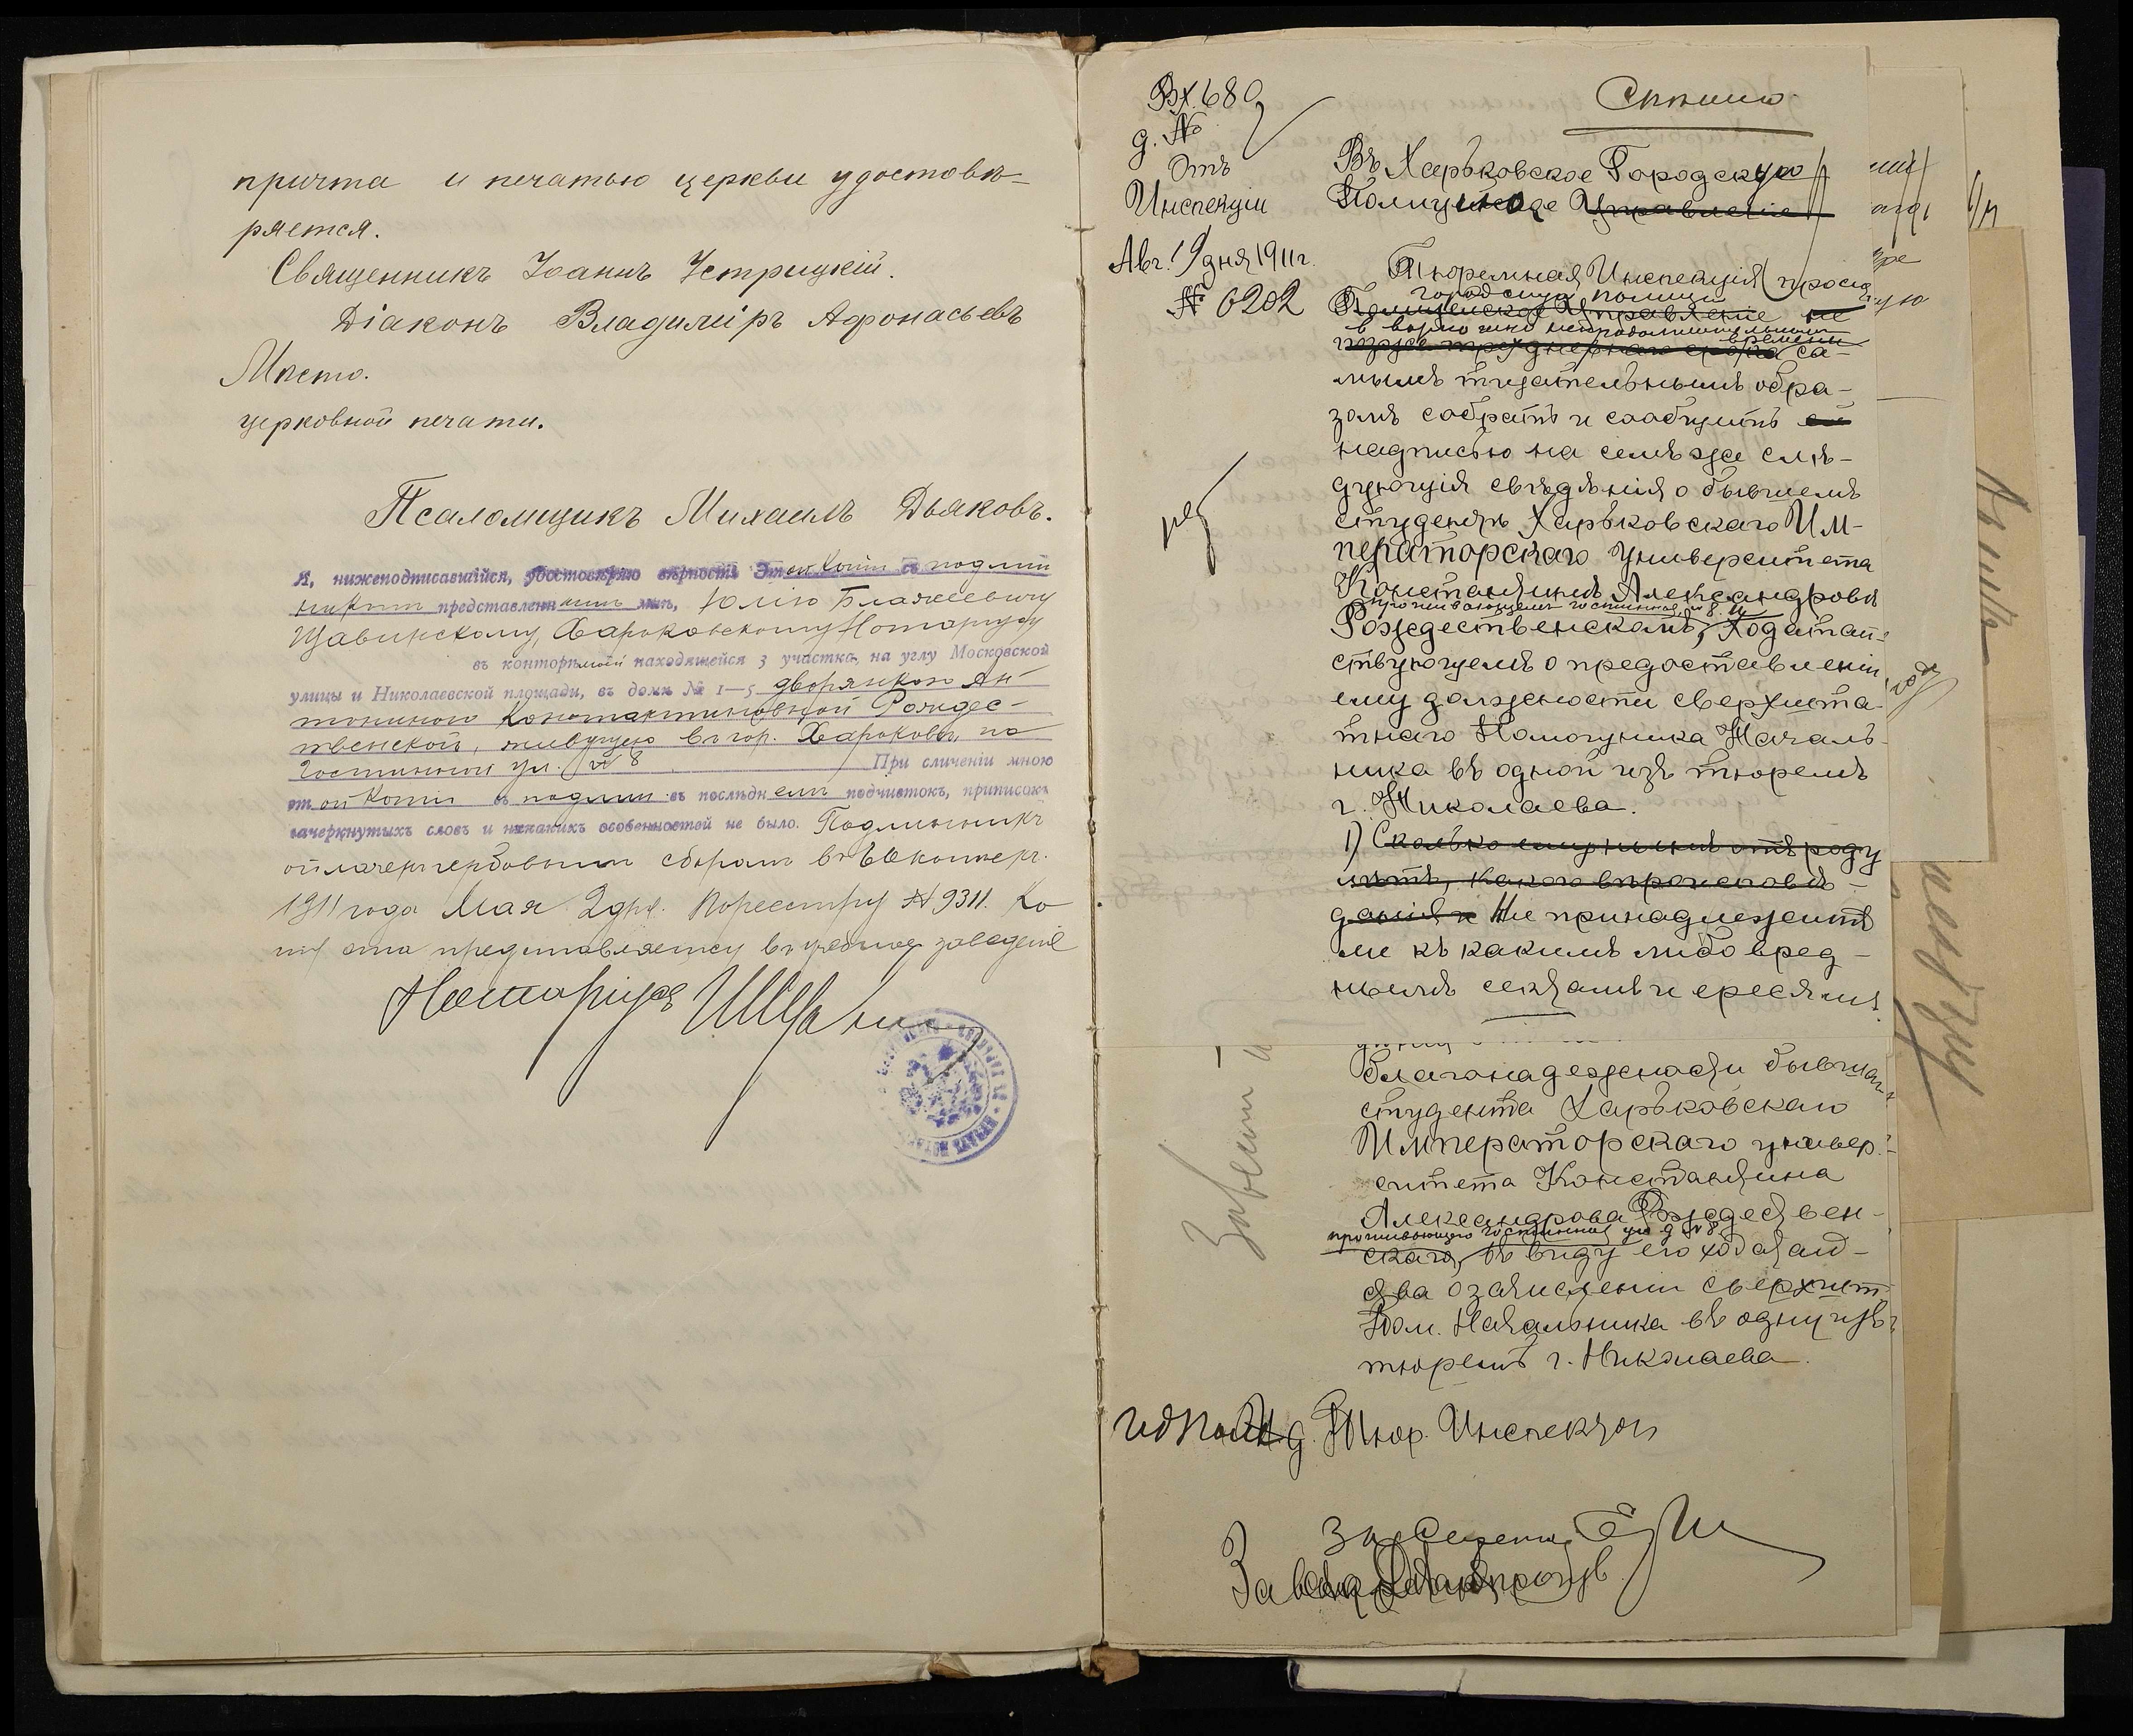 причта и печатью церкви удостовѣ-
ряется.
Священникъ Іоаннъ Истрицкій.
Діаконъ Владиміръ Афонасьевъ
Мѣсто.
церковной печати.
Псаломщикъ Михаилъ Дьяковъ.
Я, нижеподписавшійся, удостовѣряю вѣрность этой копіи съ подлин
никомъ представленнымъ мнѣ, Юлію Блажеевичу
Щавинскому, Харьковскому Нотаріусу
въ конторѣ моей находящейся 3 участка, на углу Московской
улицы и Николаевской площади, въ домѣ № 1—5 дворянкою Ан
тониною Константиновной Рождес-
твенской, живущею въ гор. Харьковѣ, по
Гостинной ул. № 8 При сличеніи мною
этой копіи съ подлин. въ послѣднемъ подчистокъ, приписокъ
зачеркнутыхъ словъ и никакихъ особенностей не было. Подлинникъ
оплаченъ гербовымъ сборомъ
1911 года Мая 2 дня. По реестру № 9311. Ко
пія эта представляется въ учебное заведеніе
Нотаріусъ
Вх. 680
д. №
Отъ
Инспекціи
Авг. 19 дня 1911 г.
№ 6202
Спѣшно.
Въ Харьковское Городскую
Полицейское Управленіе
Тюремная Инспекція проситъ
городскую полицію
Полицейское Управленіе не
въ непродолжительномъ
времени
позже трехдневнаго срока са-
мымъ тщательнымъ обра-
зомъ собрать и сообщить ей
надписью на семъ же слѣ-
дующія свѣдѣнія о бывшемъ
студентѣ Харьковскаго Им-
ператорскаго Университета
Константинѣ Александровѣ
проживающемъ Гостинная, № 8.
Рождественскомъ, ходатай-
ствующемъ о предоставленіи
ему должности сверхшта-
тнаго Помощника Началь-
ника въ одной изъ тюремъ
г. Николаева.
1) Сколько ему нынѣ отъ роду
лѣтъ, какого вѣроисповѣ-
данія и Не принадлежитъ
ли къ какимъ либо вред-
нымъ сектамъ и ересямъ.
благонадежности бывшаго
студента Харьковскаго
Императорскаго универ-
ситета Константина
Александрова Рождествен-
проживающаго Гостинная ул. д. № 8
скаго, въ виду его ходатай-
ства о зачисленіи сверхшт.
Пом. Начальника въ одну изъ
тюремъ г. Николаева.
И. д. Тюр. Инспектора
За Секрет.